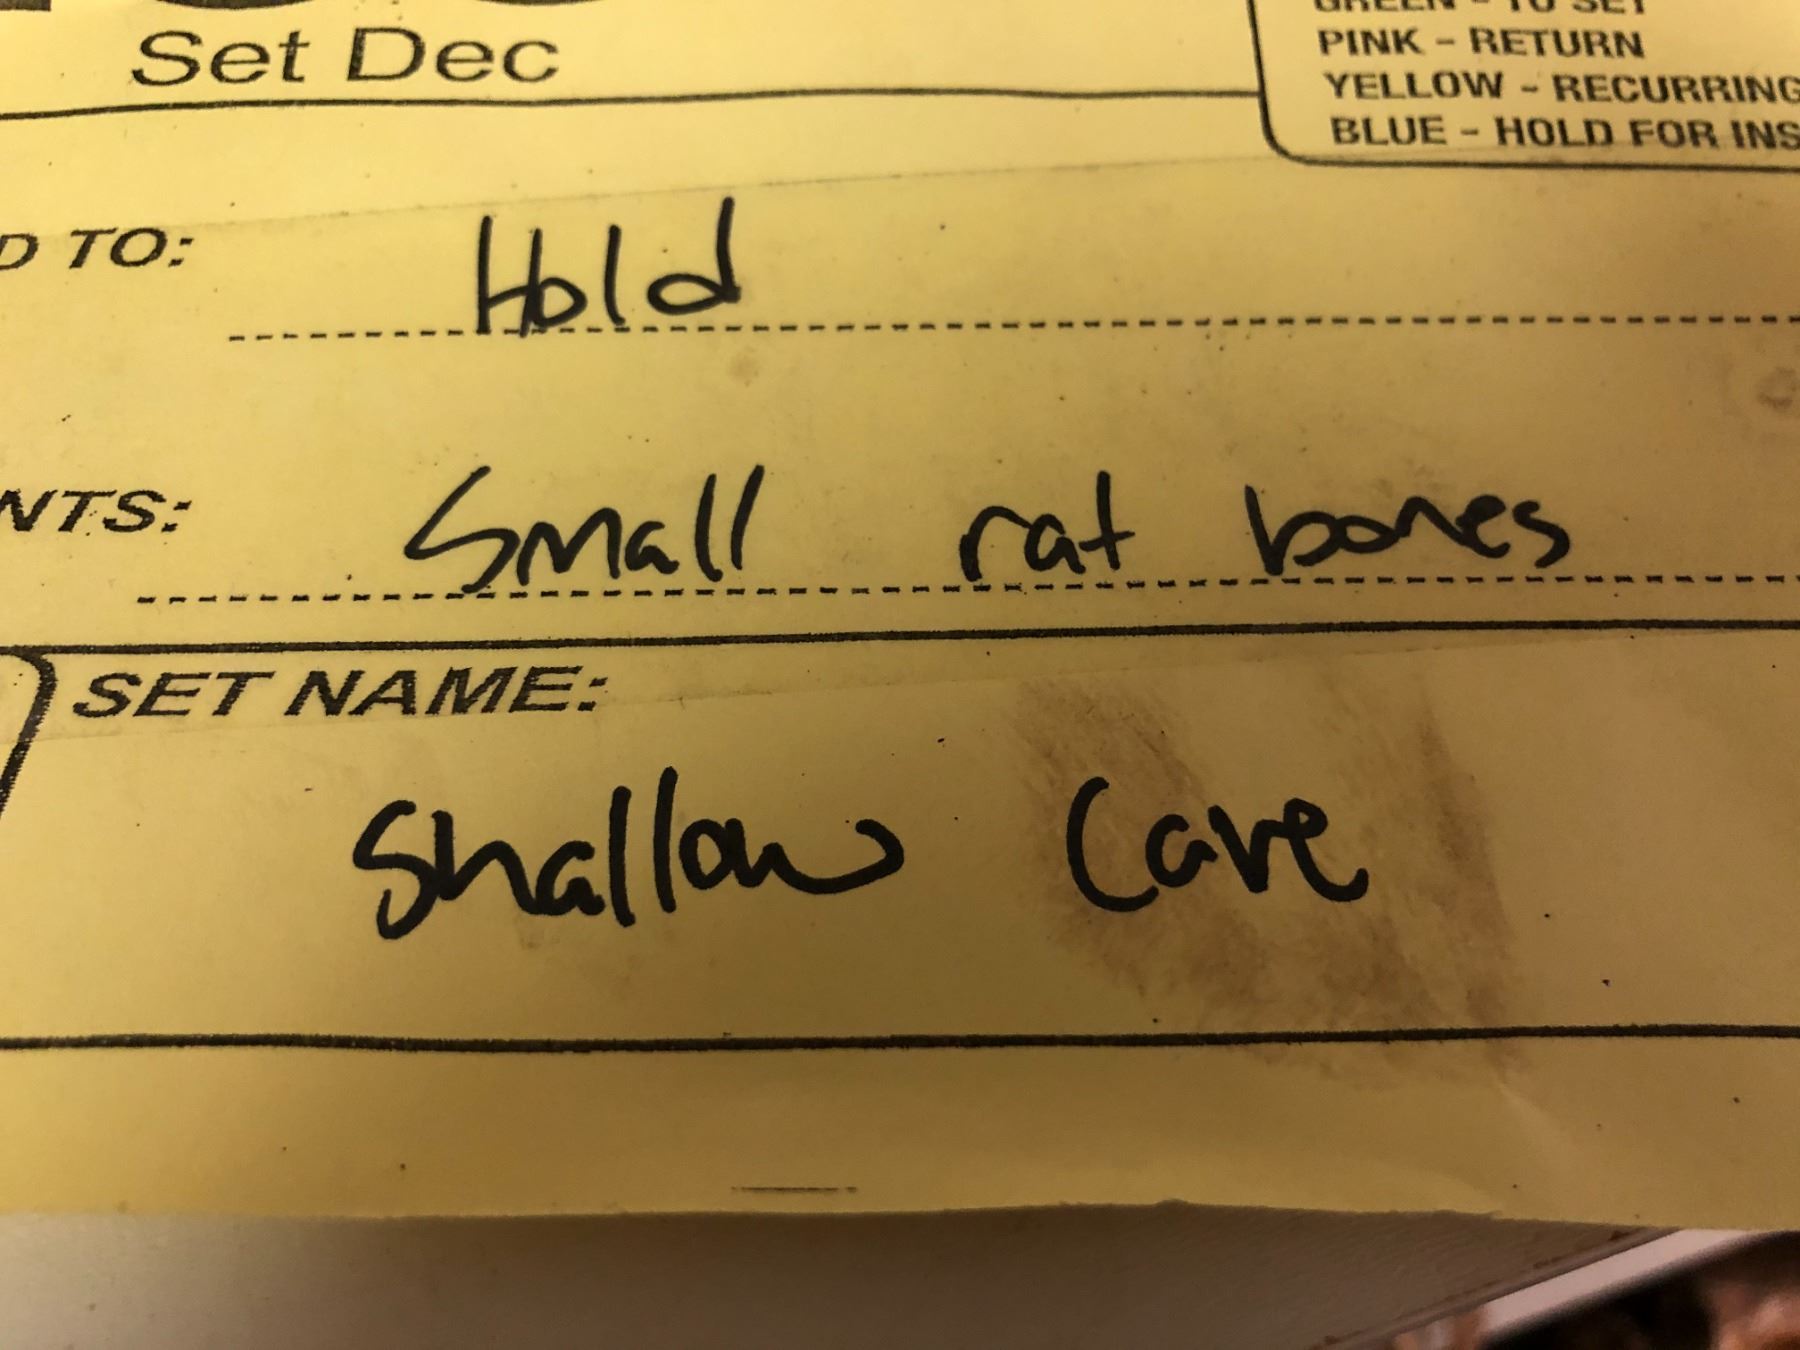 Set Dec
GREEN - TO SET
PINK - RETURN
YELLOW - RECURRING
BLUE - HOLD FOR INS
D TO: Hold
NTS: Small rat bones
SET NAME:
Shallow Cave